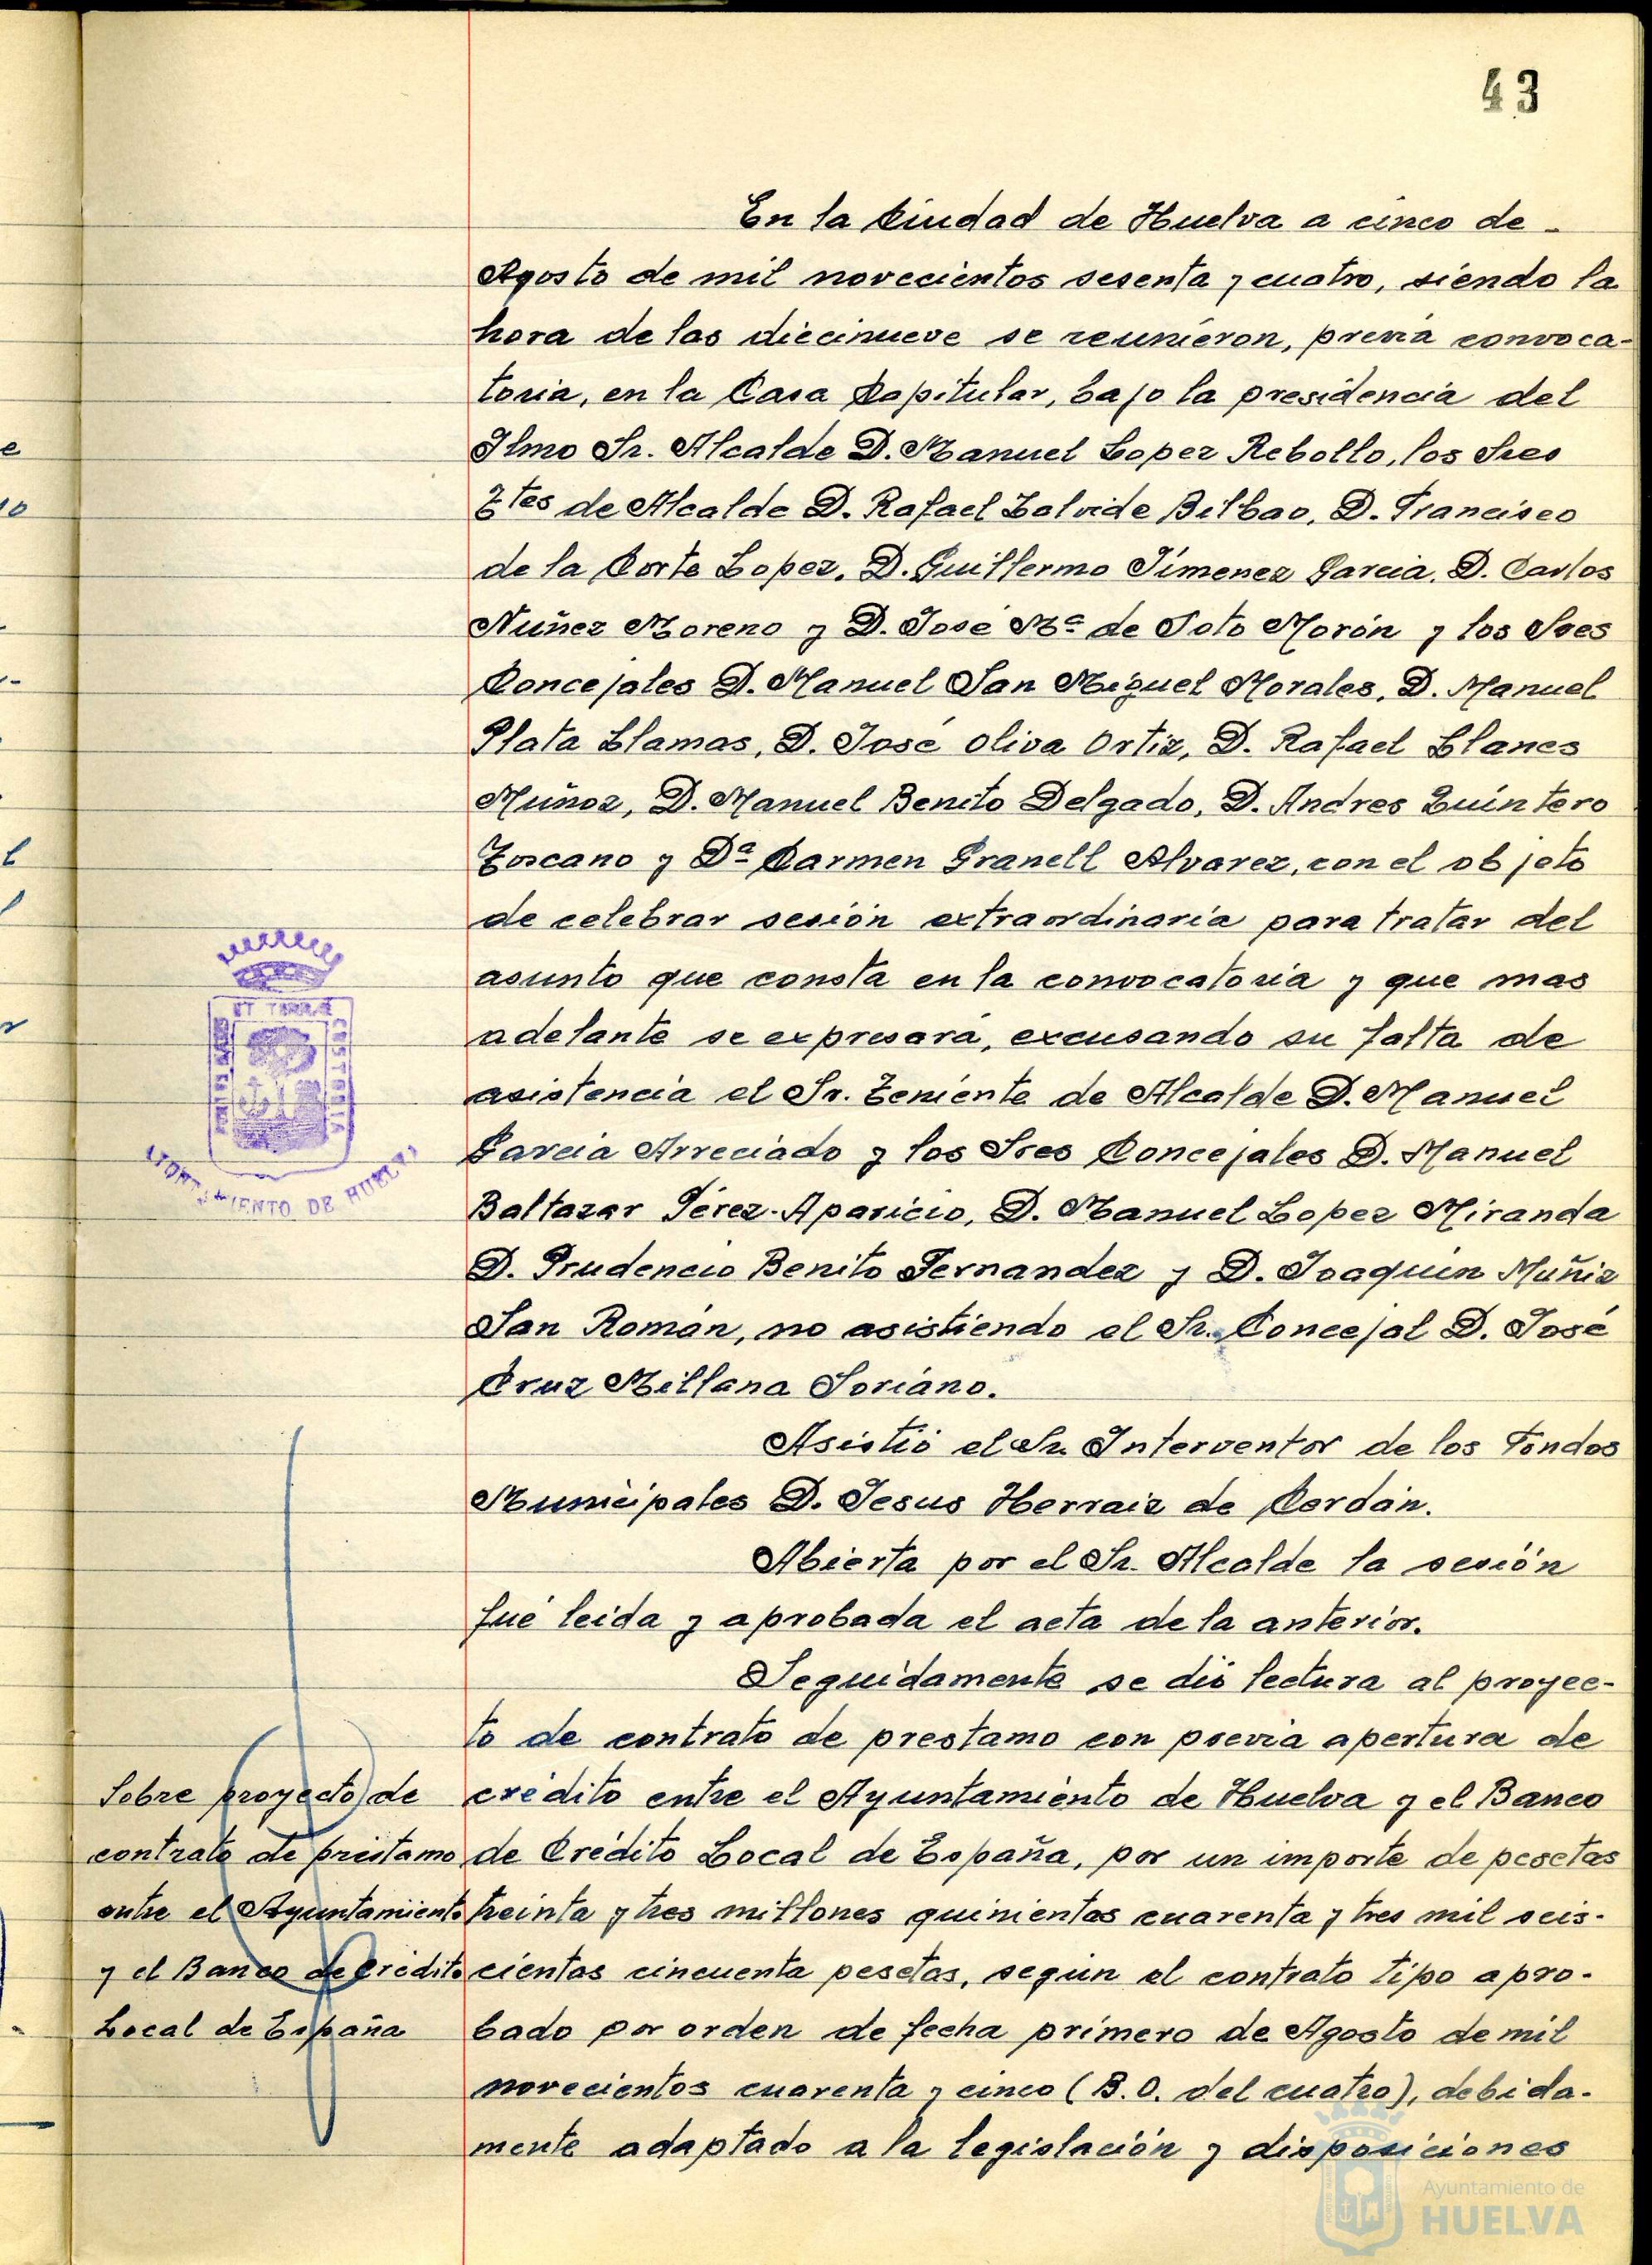 43
En la Ciudad de Huelva a cinco de -
Agosto de mil novecientos sesenta y cuatro, siendo la
hora de las diecinueve se reunieron, previa convoca-
toria, en la Casa Capitular, bajo la presidencia del
Ilmo Sr. Alcalde D. Manuel Lopez Rebollo, los Sres
Ttes de Alcalde D. Rafael Zalvide Bilbao, D. Francisco
de la Corte Lopez, D. Guillermo Jimenez Garcia, D. Carlos
Nuñez Moreno y D. José Mª de Soto Morón y los Sres
Concejales D. Manuel San Miguel Morales, D. Manuel
Plata Llamas, D. José Oliva Ortiz, D. Rafael Llanes
Muñoz, D. Manuel Benito Delgado, D. Andres Quintero
Toscano y Dª Carmen Granell Alvarez, con el objeto
de celebrar sesión extraordinaria para tratar del
asunto que consta en la convocatoria y que mas
adelante se expresará, excusando su falta de
asistencia el Sr. Teniente de Alcalde D. Manuel
Garcia Arreciado y los Sres Concejales D. Manuel
Baltazar Pérez-Aparicio, D. Manuel Lopez Miranda
D. Prudencio Benito Fernandez y D. Joaquin Muñiz
San Román, no asistiendo el Sr. Concejal D. José
Cruz Millana Soriano.
Asistió el Sr. Interventor de los Fondos
Municipales D. Jesus Herraiz de Cerdán.
Abierta por el Sr. Alcalde la sesión
fué leida y aprobada el acta de la anterior.
Seguidamente se dió lectura al proyec-
to de contrato de prestamo con previa apertura de
crédito entre el Ayuntamiento de Huelva y el Banco
de Crédito Local de España, por un importe de pesetas
treinta y tres millones quinientas cuarenta y tres mil seis-
cientas cincuenta pesetas, según el contrato tipo apro-
bado por orden de fecha primero de Agosto de mil
novecientos cuarenta y cinco (B.O. del cuatro), debida-
mente adaptado a la legislación y disposiciones
Sobre proyecto de
contrato de préstamo
entre el Ayuntamiento
y el Banco de Crédito
Local de España
AYUNTAMIENTO DE HUELVA
PORTUS MARIS
ET TERRAE
CUSTODIA
Ayuntamiento de
HUELVA